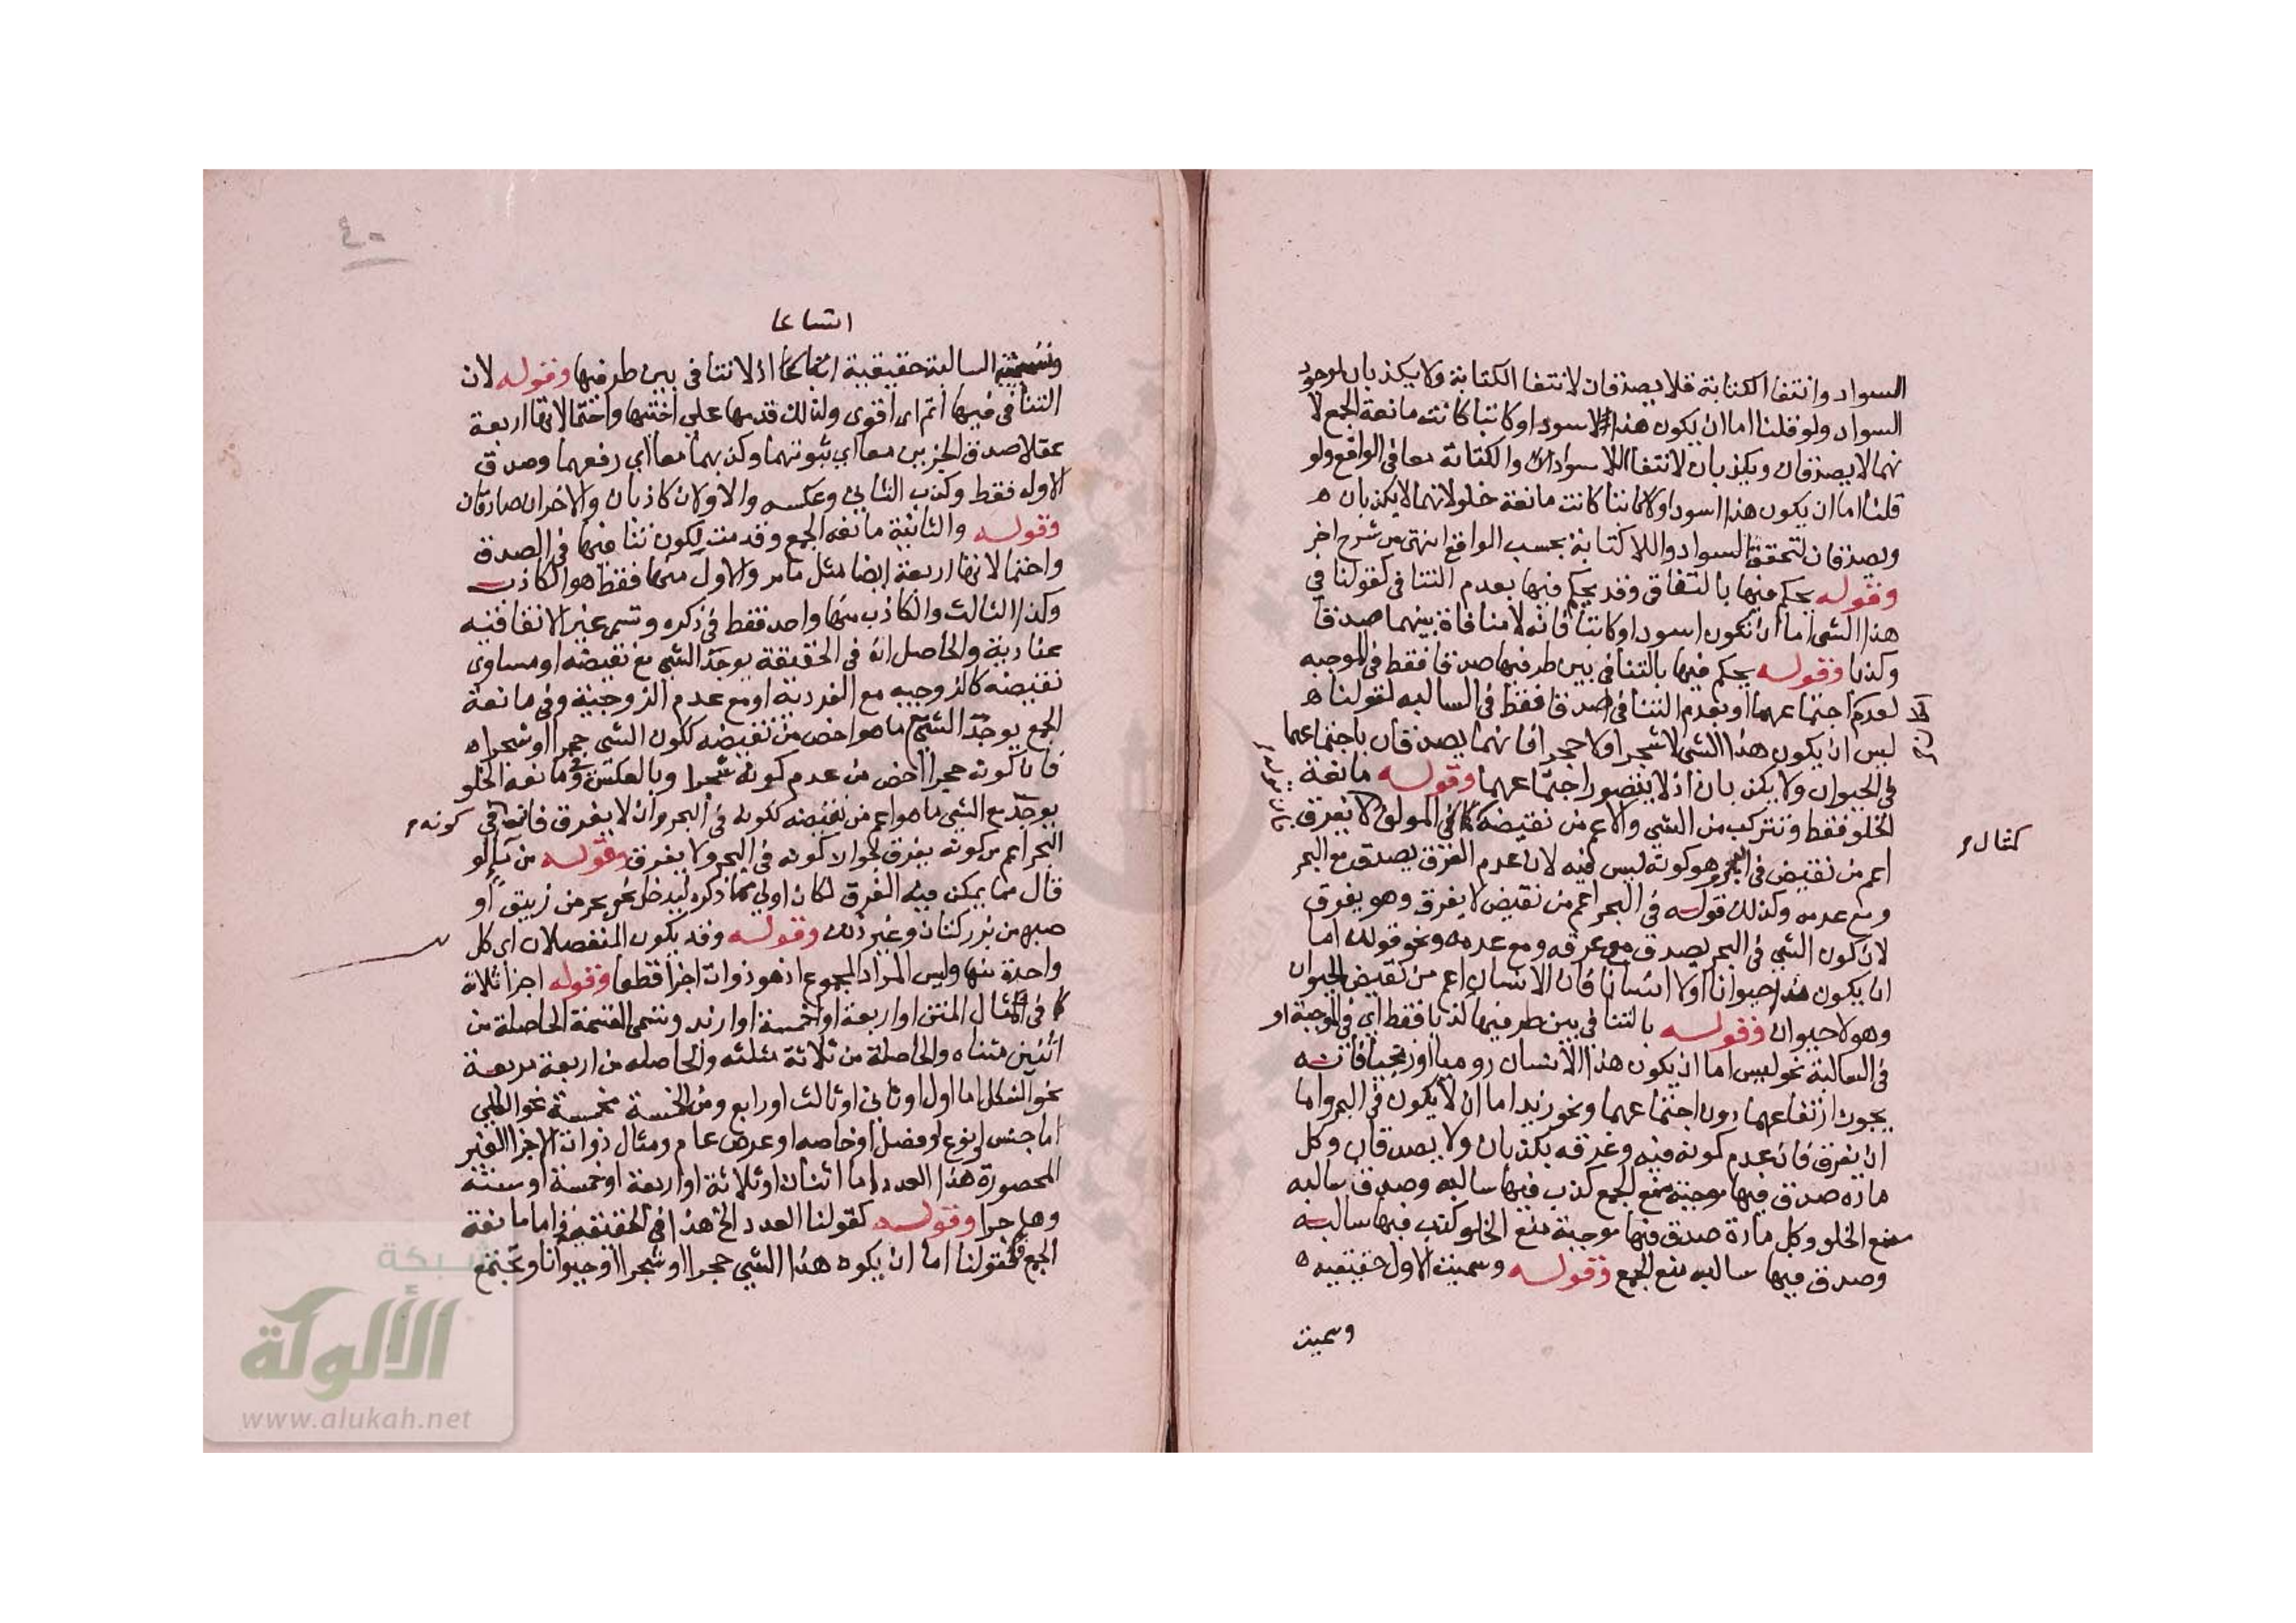 السواد وانتفا الكتابة فلا يصدقان لانتفا الكتابة ولا يكذبان لوجود
السواد ولو قلنا اما ان يكون هذا لا اسود او كاتبا كانت مانعة الجمع لا
نهما لا يصدقان ويكذبان لانتفا اللاسواد والكتابة معا في الواقع ولو
قلنا اما ان يكون هذا اسود او لا كاتبا كانت مانعة خلو لانهما لا يكذبان ه
ويصدقان لتحقق السواد واللا كتابة بحسب الواقع انتهى من شرح اخر
وقوله يحكم فيها بالتفاق وقد يحكم فيها بعدم التنافى كقولنا في
هذا الشي اما ان تكون اسود او كاتبا فانه لا منافاة بينهما صدقا
وكذبا وقوله يحكم فيها بالتنافي بين طرفيها صدقا فقط في الموجبه
لعدم اجتماعهما او بعدم التنافي صدقا فقط في السالبه لقولنا ه
ليس ان يكون هذا الشي لا شجرا ولا حجرا فانهما يصدقان باجتماعهما
في الحيوان ولا يكذبان اذ لا يتصور اجتماعهما وقوله مانعة
الخلو فقط وتتركب من الشي والاعم من نقيضه المولف لا يغرق
اعم من نقيض في البحر وهو كونه ليس فيه لان عدم الغرق يصدق مع البحر
ومع عدمه وكذلك قوله في البحر اعم من نقيض لا يغرق وهو يغرق
لان كون الشي في البحر يصدق مع غرقه ومع عدمه ونحو قولك اما
ان يكون هذا حيوانا او لا انسانا فان الانسان اعم من نقيض الحيوان
وهو لا حيوان وقوله بالتنافي بين طرفيها كذبا فقط اي في الموجبة او
في السالبة نحو ليس اما ان يكون هذا الانسان روميا او زنجيا فانه
يجوز ارتفاعهما دون اجتماعهما ونحو زيد اما ان لا يكون في البحر واما
ان يغرق فان عدم كونه فيه وغرقه يكذبان ولا يصدقان وكل
ماده صدق فيها موجبة منع الجمع كذب فيها سالبه وصدق سالبه
منع الخلو وكل مادة صدق فيها موجبة منع الخلو كذب فيها سالبه
وصدق فيها سالبه منع الجمع وقوله وسميت الاول حقيقيه ه
وسميت
كمثال م
٤٠
اتساعا
وتسمية السالبة حقيقية اتساعا اذ لا تنافى بين طرفيها وقوله لان
التنافي فيها اتم اى اقوى ولذلك قدمها على اختيها واحتمالاتها اربعة
عقلا صدق الجزيين معا اي ثبوتهما وكذبهما معا اي رفعهما وصدق
الاول فقط وكذب الثاني وعكسه والاولان كاذبان والاخران صادقان
وقوله والثانية مانعة الجمع وقدمت لكون تنافيها في الصدق
واحتمالاتها اربعة ايضا مثل ما مر والاول منها فقط هو الكاذب
وكذا الثالث والكاذب منها واحد فقط في ذكره وتسمى غير الاتفاقيه
عنادية والحاصل ان في الحقيقة يوجد الشي مع نقيضه او مساوى
نقيضه كالزوجيه مع الفردية او مع عدم الزوجية وفي مانعة
الجمع يوجد الشي ما هو اخص من نقيضه ككون الشي حجرا او شجرا ه
فان كونه حجرا اخص من عدم كونه شجرا وبالعكس وفي مانعة الخلو
يوجد مع الشي ما هو اعم من نقيضه ككونه في البحر وان لا يغرق فان في
كونه م
البحر اعم من كونه يغرق لجواز كونه في البحر ولا يغرق وقوله من لو
قال مما يمكن فيه الغرق لكان اولى مما ذكره ليدخل نحو بحر من زيبق او
صبه من بزر كتان وغير ذلك وقوله وقد يكون المنفصلان اى كل
واحدة منها وليس المراد المجموع اذ هو ذوات اجزا قطعا وقوله اجزا ثلاثة
كما في المثال المتن او اربعة او خمسة او ازيد وتسمى القسمة الحاصلة من
اثنين مثناه والحاصلة من ثلاثة مثلثه والحاصله من اربعة مربعة
نحو الشكل اما اول او ثاني او ثالث او رابع ومن الخمسة مخمسة نحو الكلي
اما جنس او نوع او فصل او خاصه او عرض عام ومثال ذوات الاجزا الغير
المحصورة هذا العدد اما اثنان او ثلاثة او اربعة او خمسة او ستة
وهلم جرا وقوله كقولنا العدد الخ هذا في الحقيقية واما مانعة
الجمع فكقولنا اما ان يكون هذا الشي حجرا او شجرا او حيوانا وتجتمع
شبكة
الألوكة
www.alukah.net